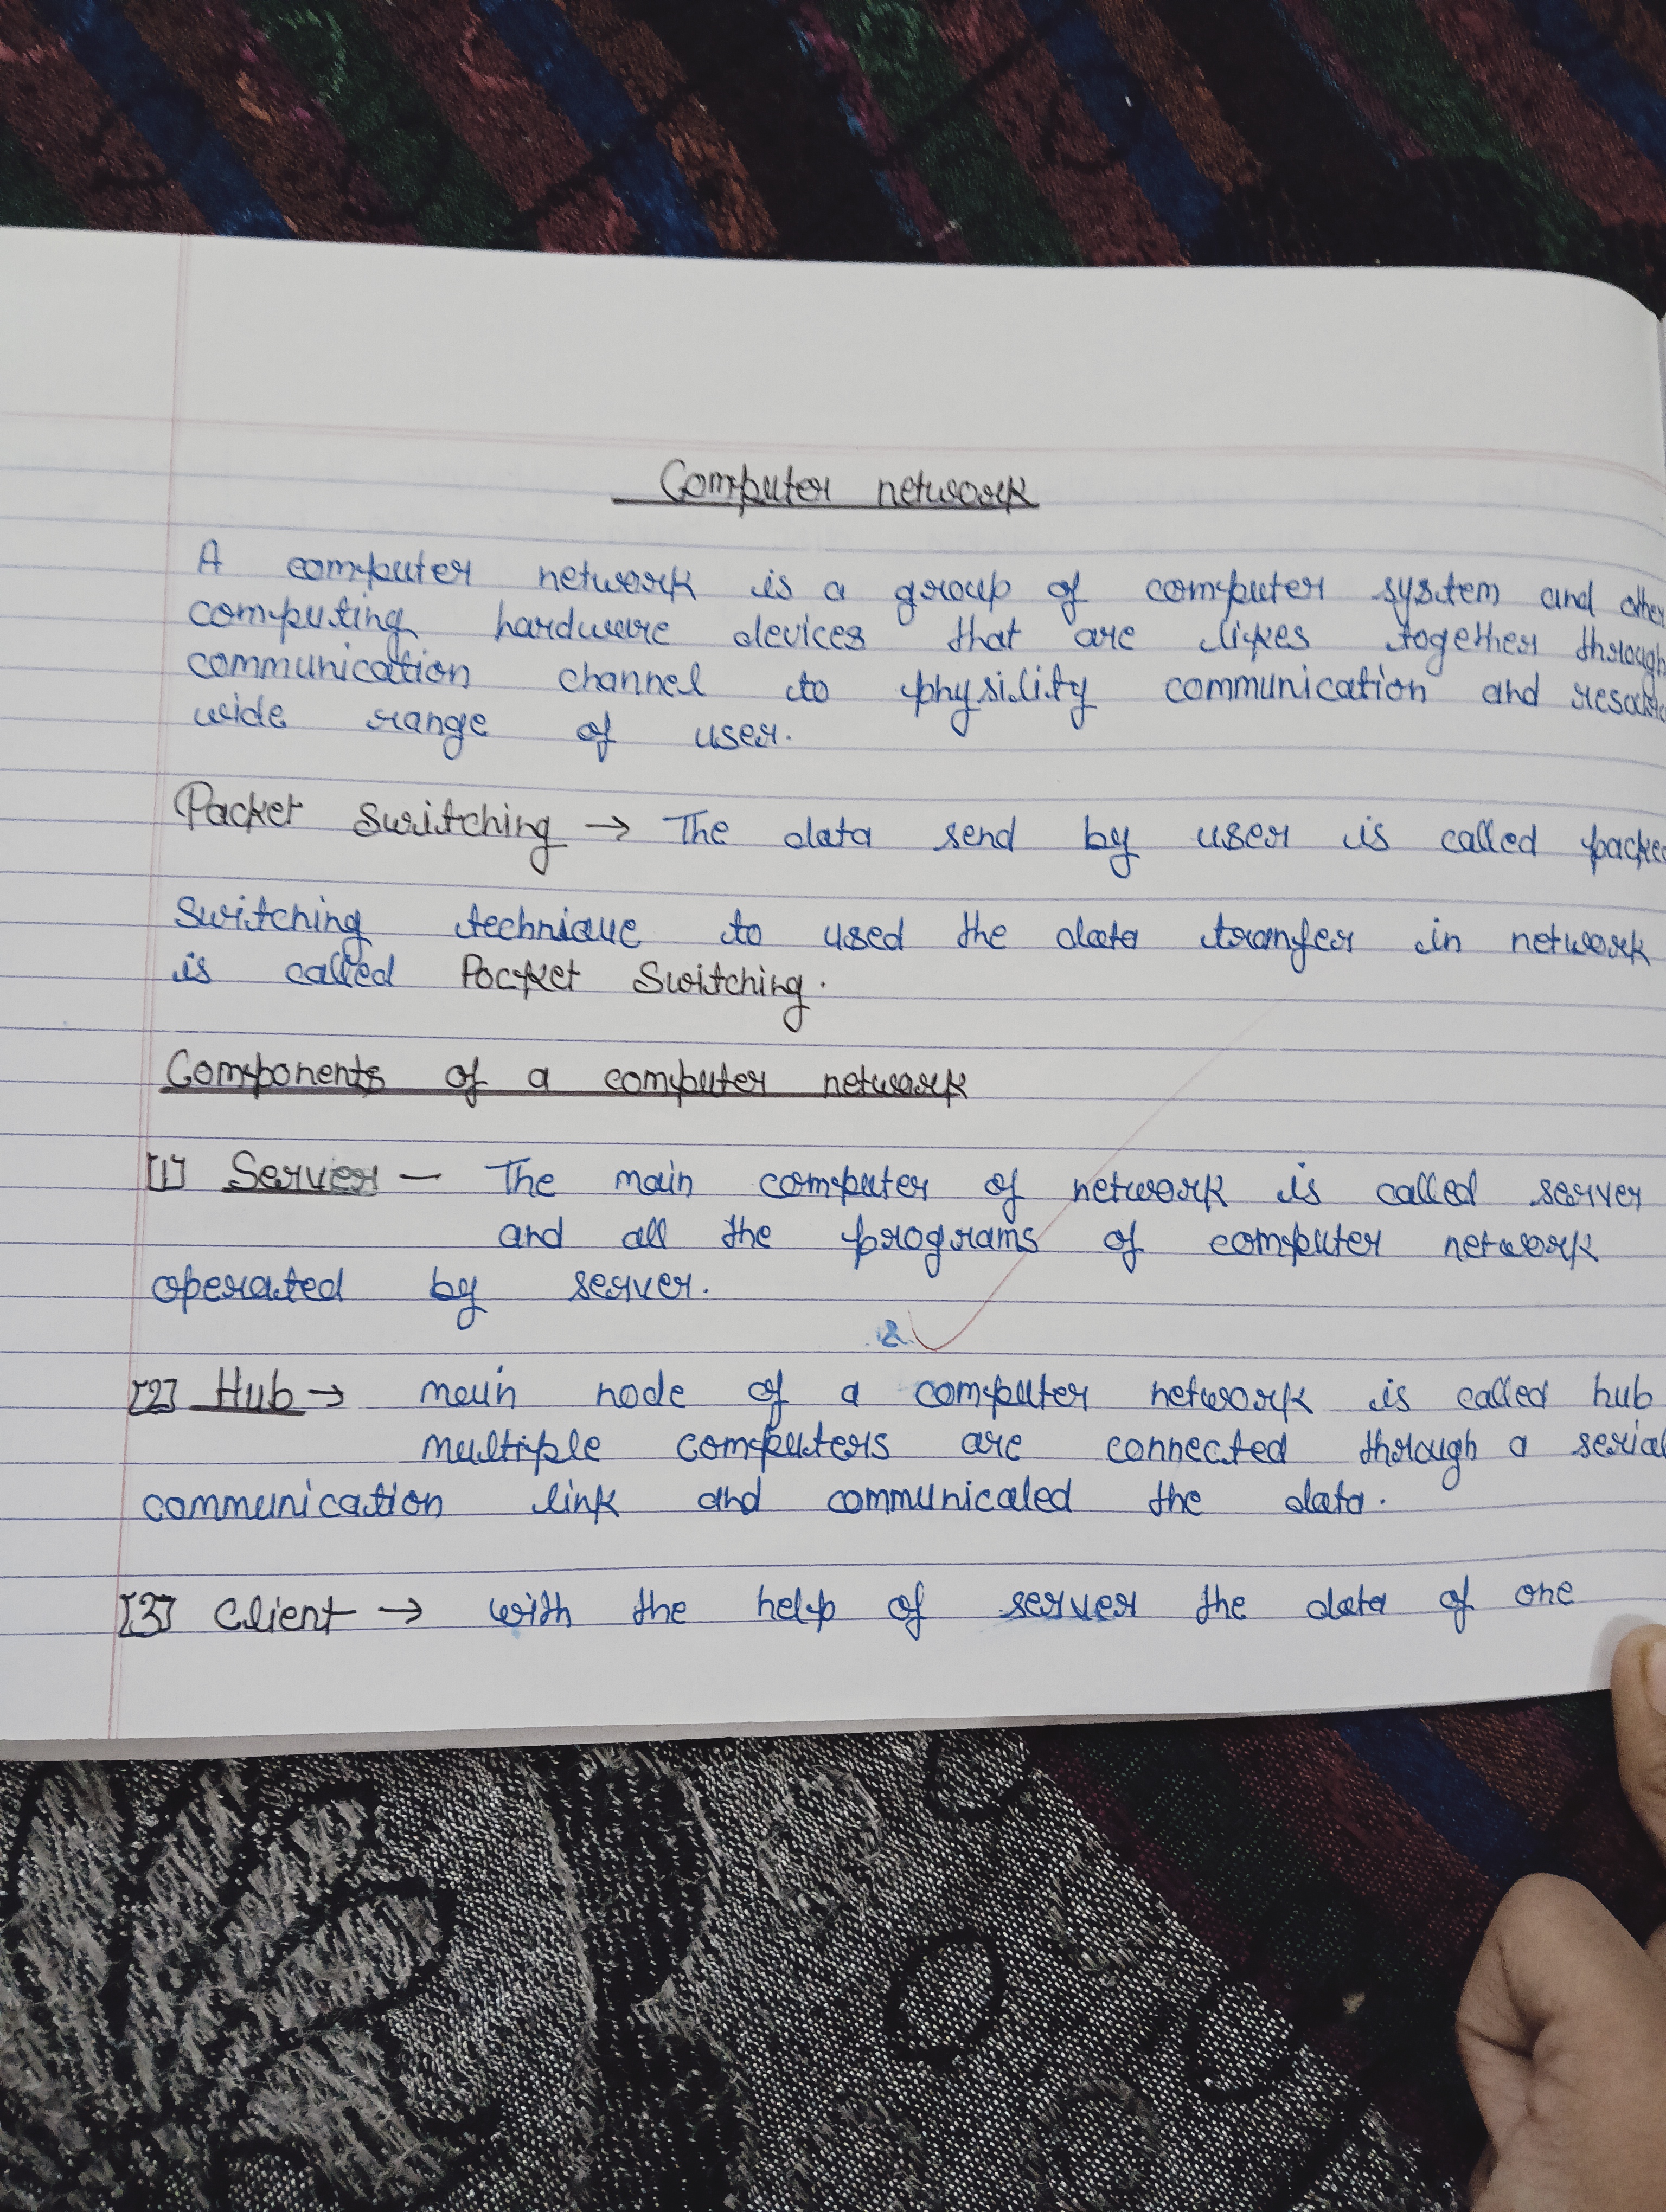 Computer network
A computer network is a group of computer system and other
computing hardware devices that are likes together through
communication channel to physility communication and
wide range of user.
Packet Switching → The data send by user is called
Switching technique to used the data tranfer in network
is called Pocket Switching.
Components of a computer network
[1] Server — The main computer of network is called server
and all the programs of computer network
operated by server.
[2] Hub → main node of a computer network is called hub
multiple computers are connected through a serial
communication link and communicaled the data.
[3] Client → with the help of server the data of one